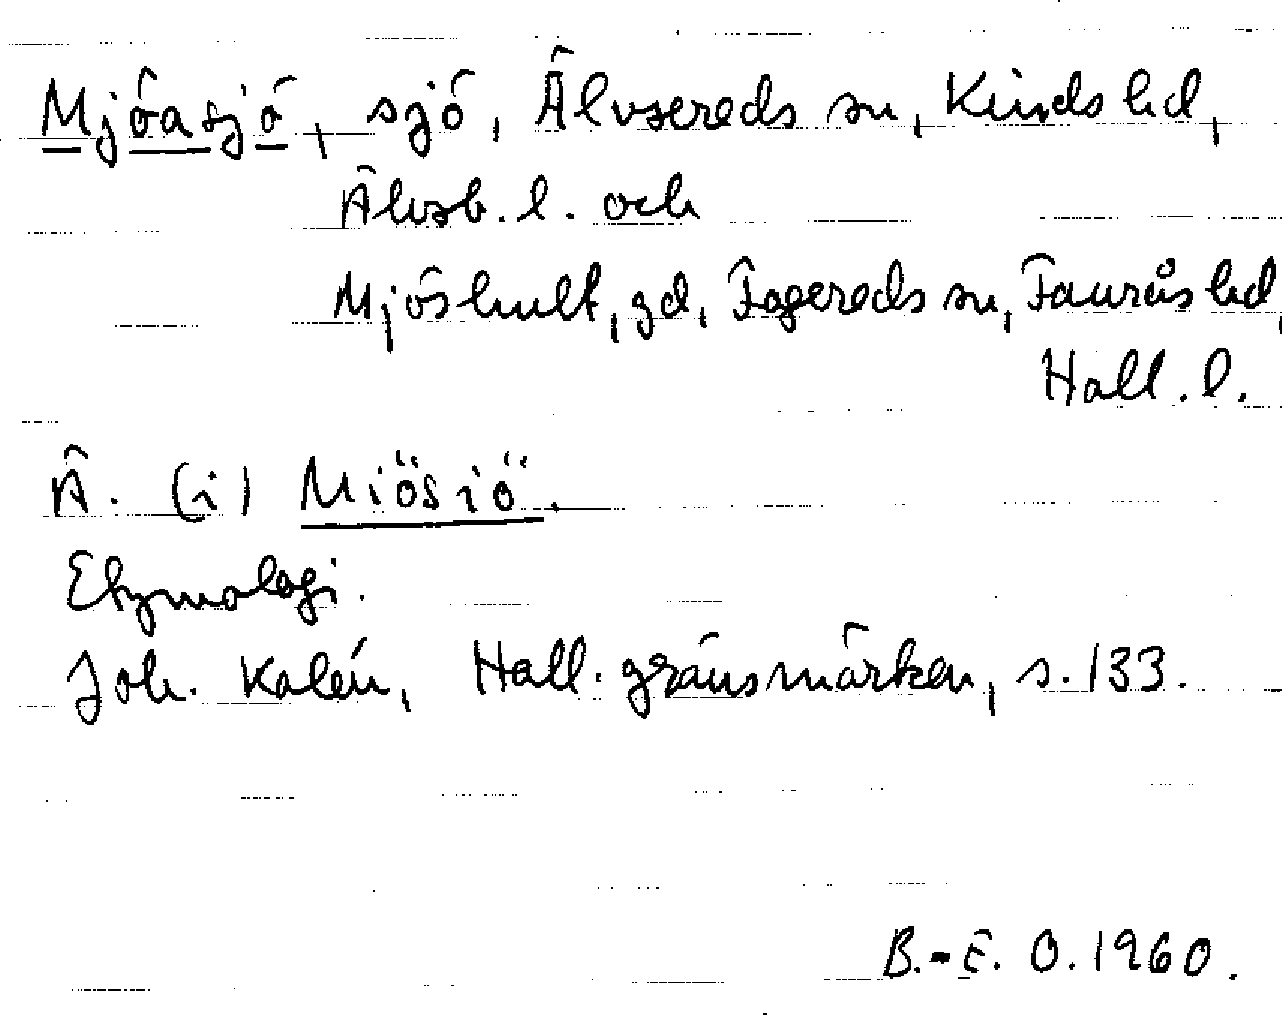 Mjöasjö, sjö, Älvsereds sn, Kinds hd,
Älvsb. l. och
Mjöshult, gd, Fagereds sn, Faurås hd,
Hall. l.
Ä. (i) Miösiö.
Etymologi.
Joh. Kalén, Hall. gränsmärken, s. 133.
B.-E. O. 1960.